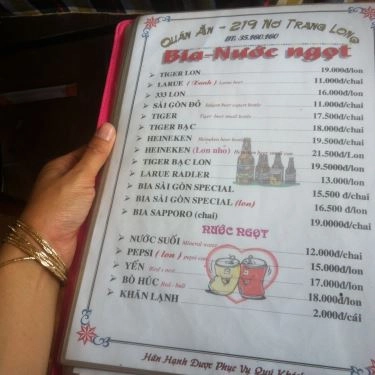 Quán Ăn - 219 Nơ Trang Long
ĐT: 35.160.160
Bia-Nước ngọt
➢ TIGER LON 19.000đ/lon
➢ LARUE (Xanh) Larue beer 11.000đ/chai
➢ 333 LON 16.000đ/lon
➢ SÀI GÒN ĐỎ Saigon beer export bottle 11.000đ/chai
➢ TIGER Tiger beer small bottle 17.500đ/chai
➢ TIGER BẠC 18.000đ/chai
➢ HEINEKEN Heineken beer bottle 19.500đ/chai
➢ HEINEKEN (Lon nhỏ) Heineken beer small can 21.500đ/Lon
➢ TIGER BẠC LON 19.5000đ/lon
➢ LARUE RADLER 13.000/lon
➢ BIA SÀI GÒN SPECIAL 15.500 đ/chai
➢ BIA SÀI GÒN SPECIAL (lon) 16.500 đ/lon
➢ BIA SAPPORO (chai) 19.0000đ/chai
NƯỚC NGỌT
➢ NƯỚC SUỐI Mineral water 12.000đ/chai
➢ PEPSI (lon) pepsi can 15.000đ/lon
➢ YẾN 17.000đ/lon
➢ BÒ HÚC Red - bull 18.000đ/lon
➢ KHĂN LẠNH 2.000đ/cái
Hân Hạnh Được Phục Vụ Quý